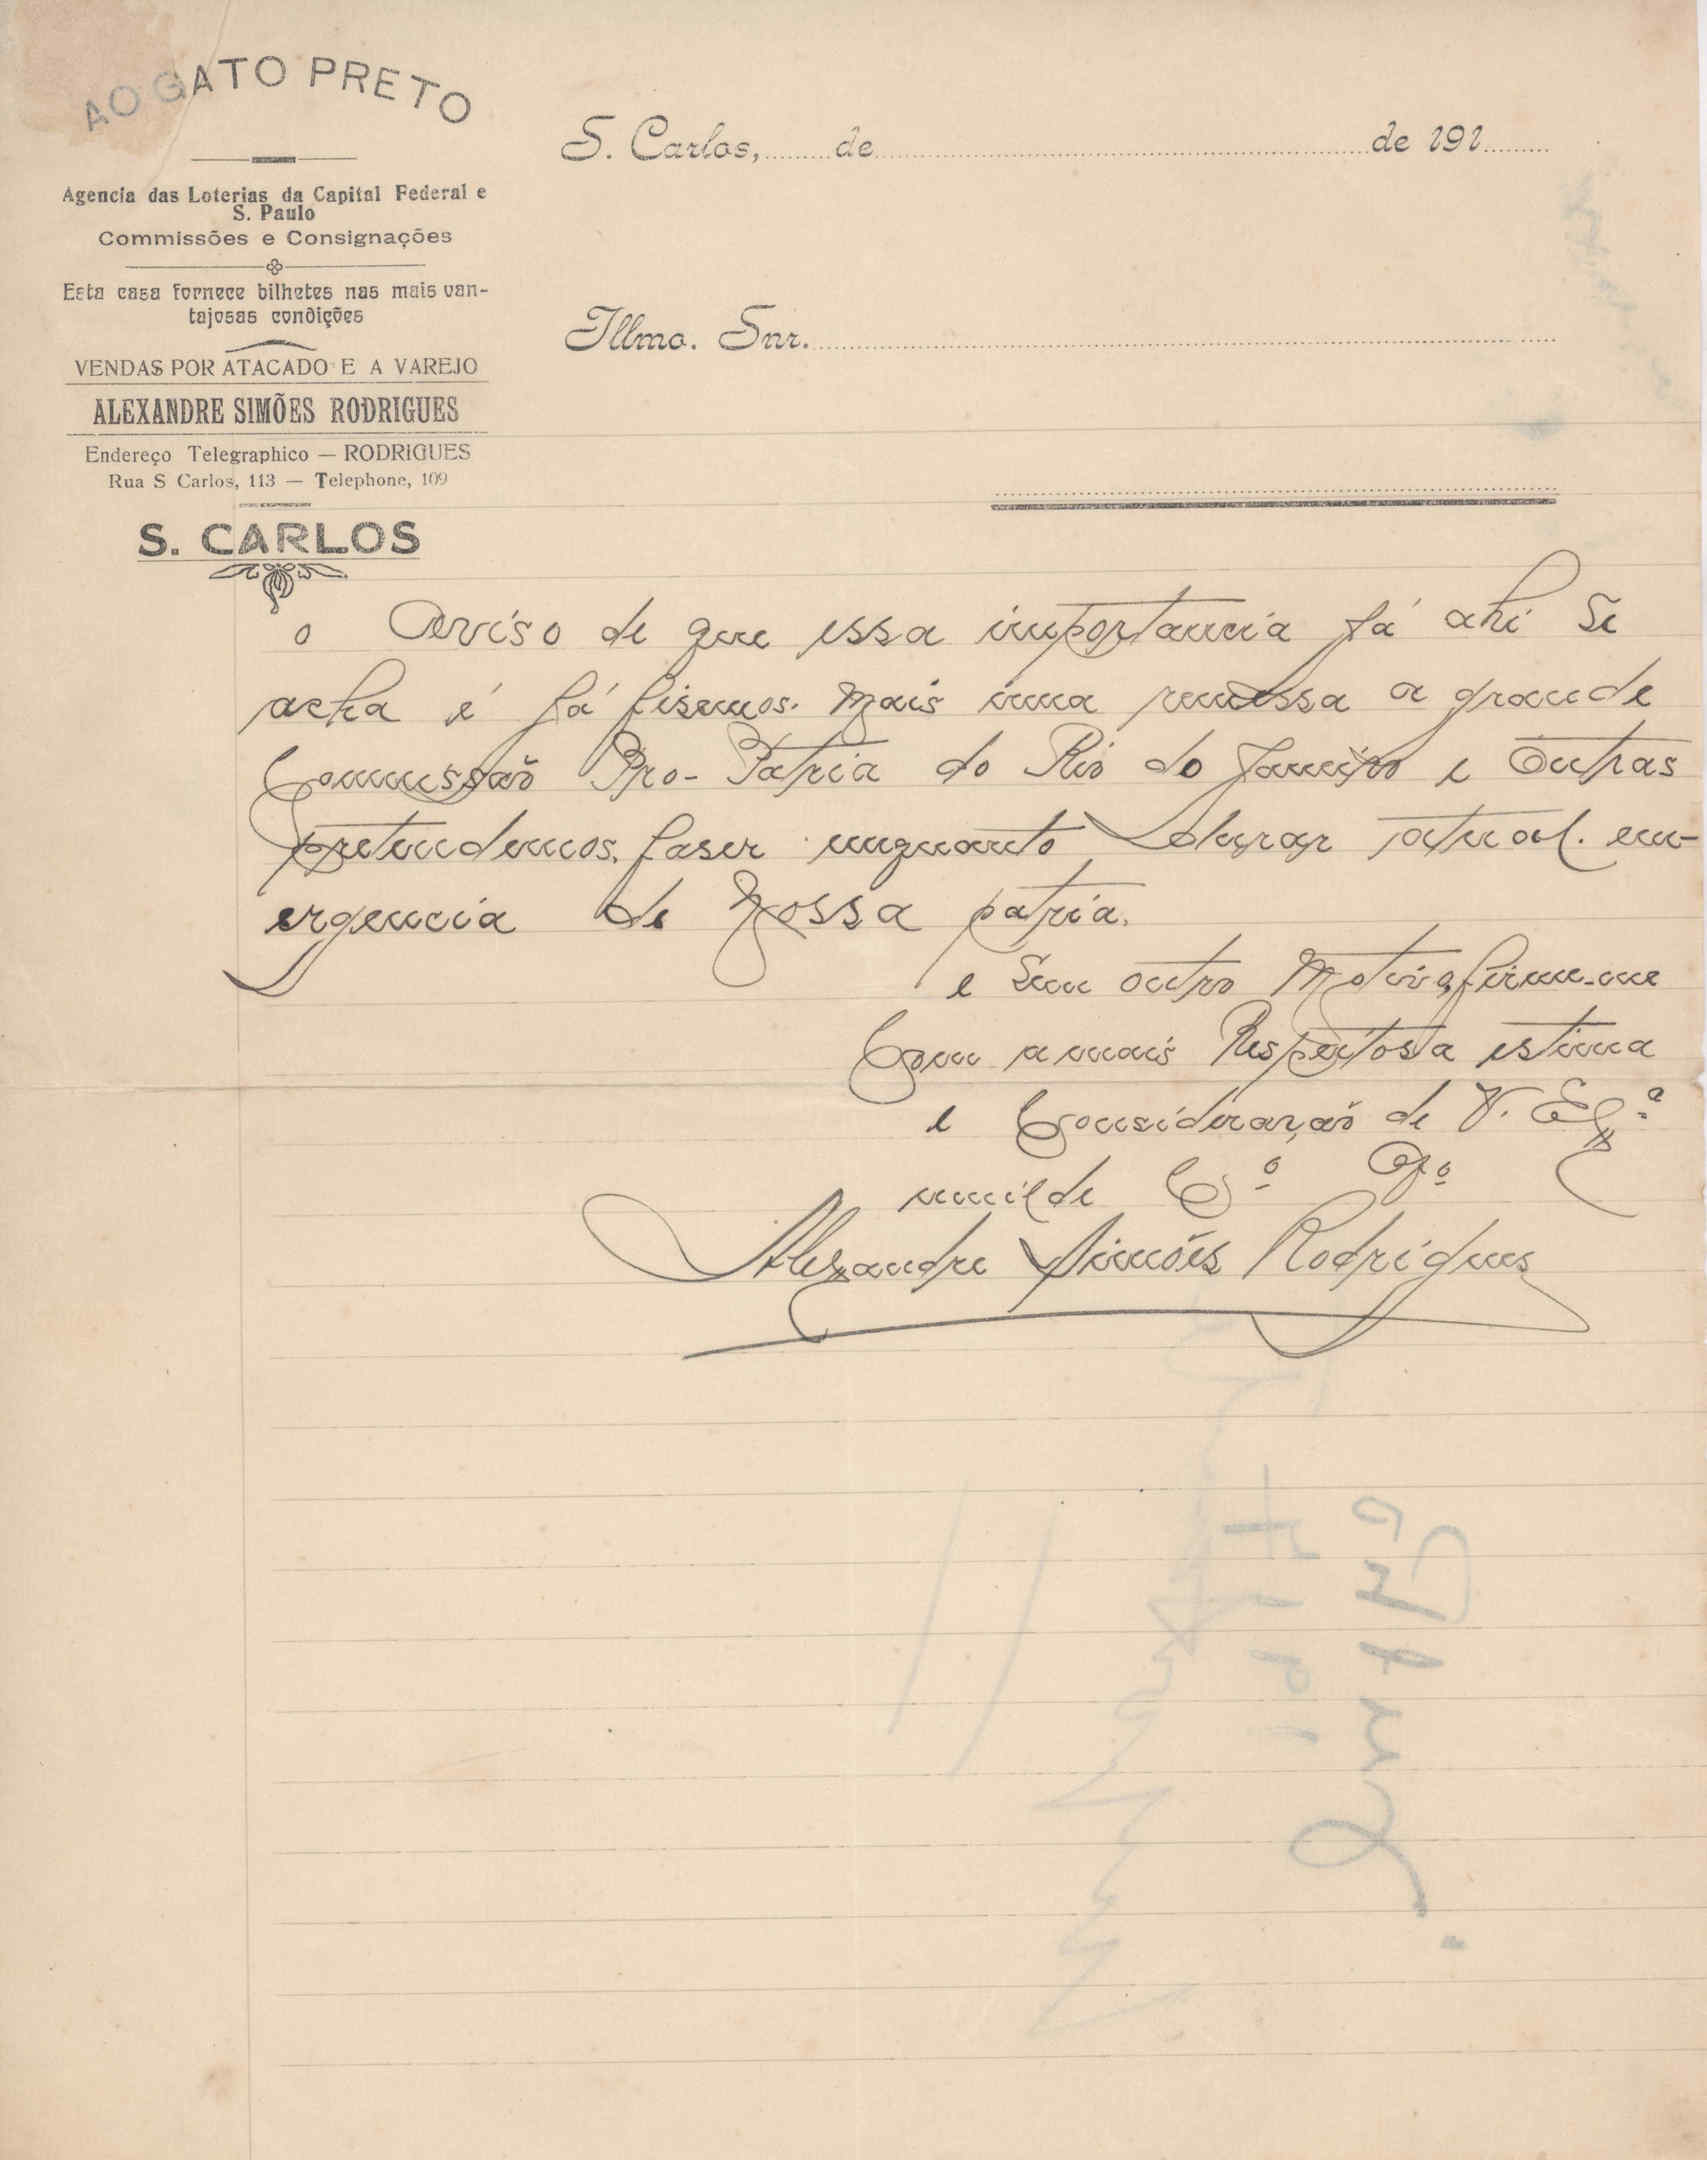 AO GATO PRETO
Agencia das Loterias da Capital Federal e
S. Paulo
Commissões e Consignações
Esta casa fornece bilhetes nas mais van-
tajosas condições
VENDAS POR ATACADO E A VAREJO
ALEXANDRE SIMÕES RODRIGUES
Endereço Telegraphico — RODRIGUES
Rua S Carlos, 113 — Telephone, 109
S. CARLOS
S. Carlos, de de 191
Illmo. Snr.
o Aviso de que essa importancia já ahi se
acha é já fisemos. Mais uma remessa a grande
Commissão Pro-Patria do Rio do Janeiro e Outras
pretendemos. faser emquanto durar atual. em-
ergencia de Nossa patria.
e Sem outro Motivo, firmo-me
Com a mais Respeitosa estima
e Consideração de V. Exª
umilde Cº Oº
Alexandre Simões Rodrigues